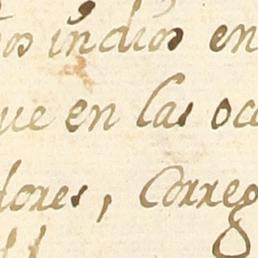 os indios en
ue en las oca
dores, Correg